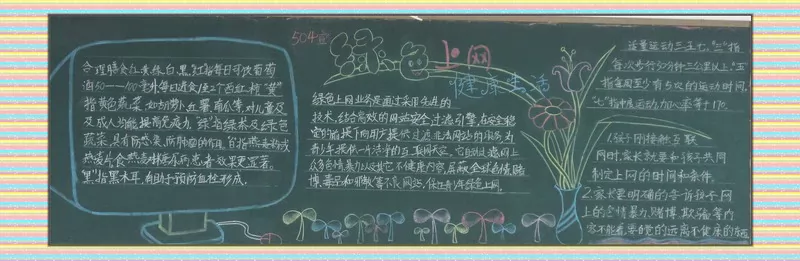 504宣
绿 上网
健康生活
合理膳食红黄绿白黑,红指每日可饮葡萄
酒50——100毫升每日进食1至2个西红柿"黄"
指黄色蔬菜,如胡萝卜红薯,南瓜等,对儿童及
及成人均能提高免疫力."绿"指绿茶及绿色
蔬菜,具有防感染,防肿瘤的作用,白指燕麦粉或
燕麦片食燕麦粥
患者效果更显著。
"黑"指黑木耳,有助于预防血栓形成。
绿色上网业务是通过采用先进的
技术,结合高效的网站安全过滤引擎,在安全稳
定的前提下向用户提供过滤非法网站的服务为
青少年提供一片洁净的互联网天空,它能过滤网上
众多色情暴力以及其它不健康内容,屏蔽全球色情,赌
博,毒品和邪教等不良网站,保护青少年绿色上网.
适量运动三五七,"三"指
每次步行30分钟三公里以上,"五"
指每周至少有5次的运动时间,
"七"指中度运动,加心率等于170.
1.孩子刚接触互联
网时,家长就要和孩子共同
制定上网的时间和条件.
2.家长要明确的告诉孩子网
上的色情暴力,赌博,欺骗等内
容不能看要自觉的远离不健康的东西